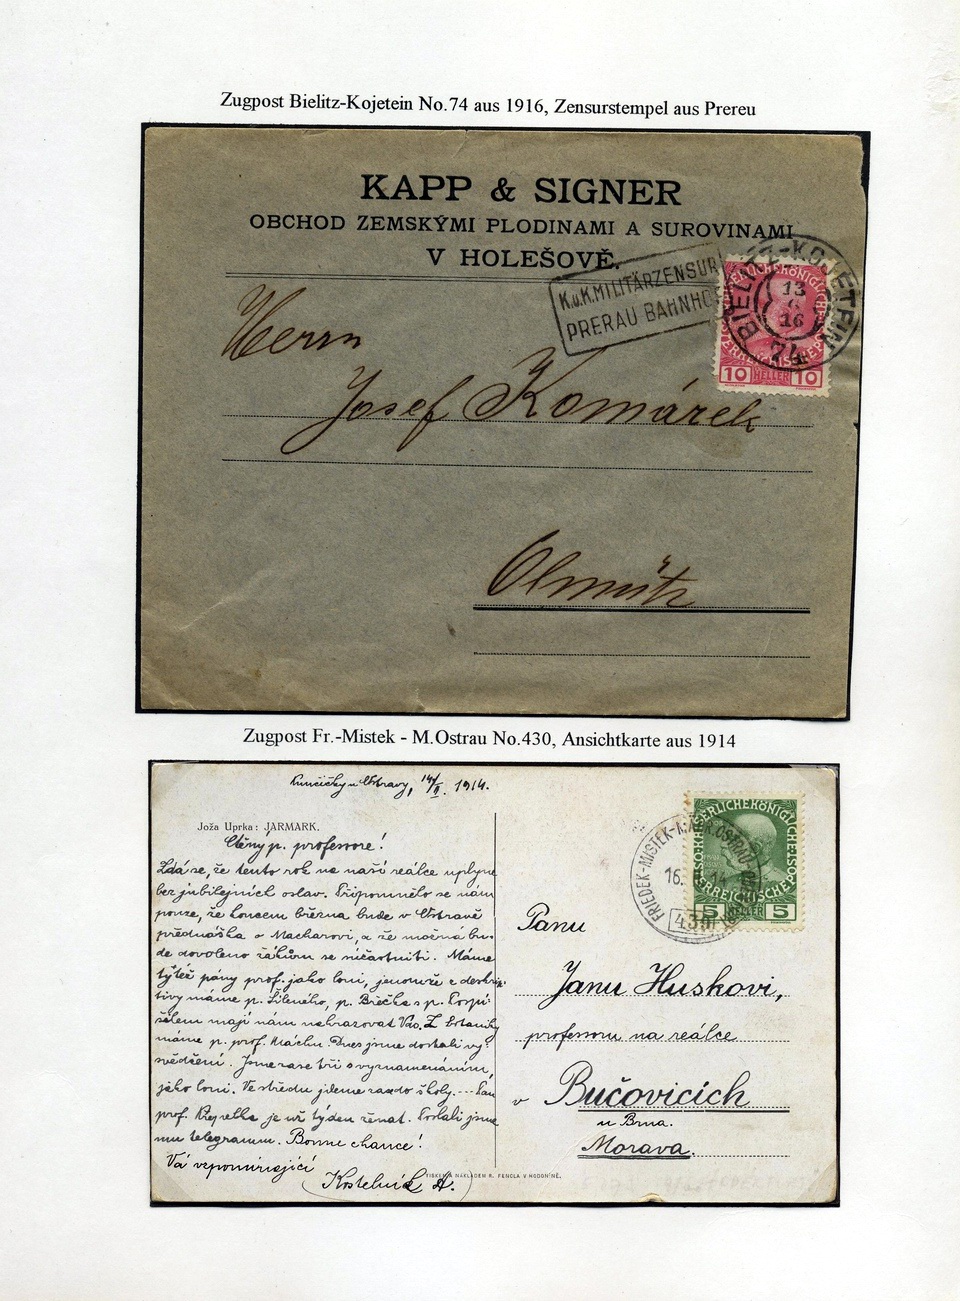 Zugpost Bielitz-Kojetein No.74 aus 1916, Zensurstempel aus Prereu
KAPP & SIGNER
OBCHOD ZEMSKÝMI PLODINAMI A SUROVINAMI
V HOLEŠOVĚ.
K.u.K. MILITÄRZENSUR
PRERAU BAHNHO
BIELITZ-KOJETEIN
13
16
74
10 HELLER 10
Herrn
Josef Komárek
Olmütz
Zugpost Fr.-Mistek - M.Ostrau No.430, Ansichtkarte aus 1914
Kunčičky u Ostravy, 14/II. 1914.
Joža Uprka: JARMARK.
Ctěný p. professore!
Zdá se, že tento rok na naší reálce uplyne
bez jubilejních oslav. Připomnělo se nám
pouze, že koncem března bude v Ostravě
přednáška o Macharovi, a že možná bu-
de dovoleno žákům se súčastniti. Máme
tytéž pány prof. jako loni, jenomže z deskrip-
tivy máme p. Šileného, p. Brečka s p. Pospí
šilem mají nám nahrazovat Vás. Z botaniky
máme p. prof. Máchu. Dnes jsme dostali vy-
svědčení. Jsme zase tři s vyznamenáním,
jako loni. Ve středu jdeme zas do školy. -- Pan
prof. je už týden ženat. Poslali jsme
mu telegramm. Bonne chance!
Vá vzpomínající
Kostelník A.
TISKEM A NÁKLADEM R. FENDLA V HODONÍNĚ.
FRIEDEK-MISTEK-M.
16. 14
430
5 HELLER 5
Panu
Janu Huskovi,
professoru na reálce
v Bučovicích
u Brna.
Morava.